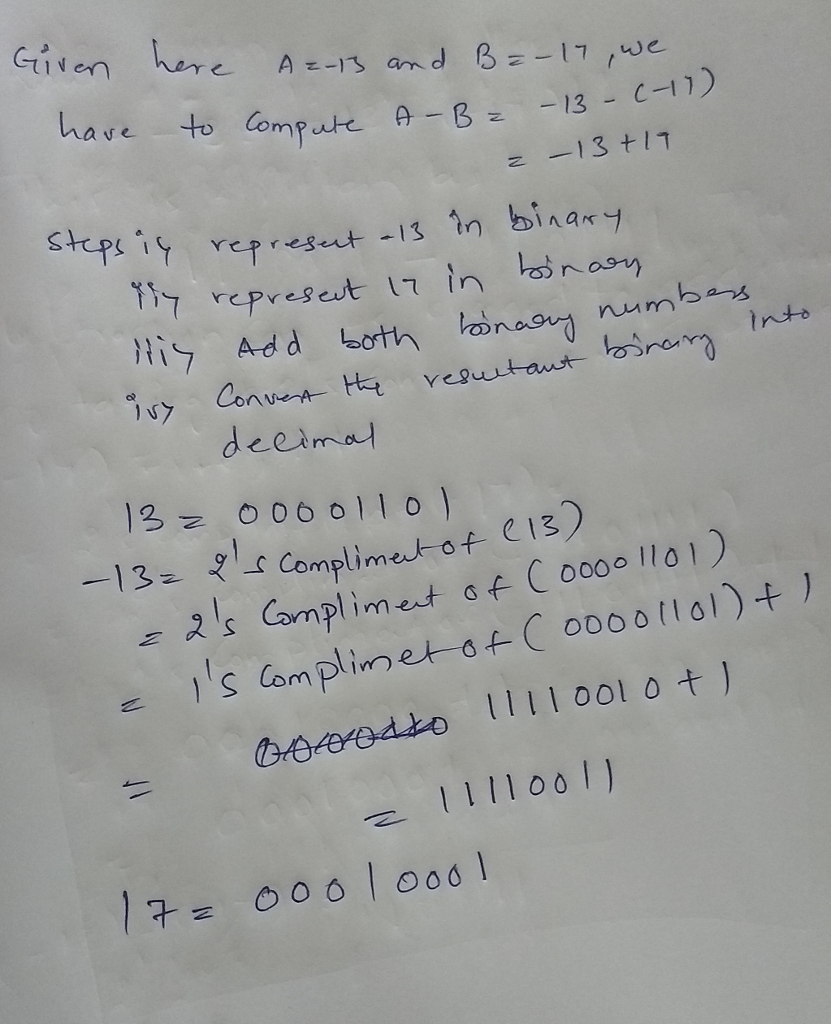 Given here A=-13 and B=-17, we
have to Compute A-B = -13 - (-17)
= -13+17
Steps i) represent -13 in binary
ii) represent 17 in binary
iii) Add both binary numbers
iv) Convert the resultant binary into
decimal
13 = 00001101
-13 = 2's Compliment of (13)
= 2's Compliment of (00001101)
= 1's Complimet of (00001101) + 1
= 11110010 + 1
= 11110011
17 = 00010001